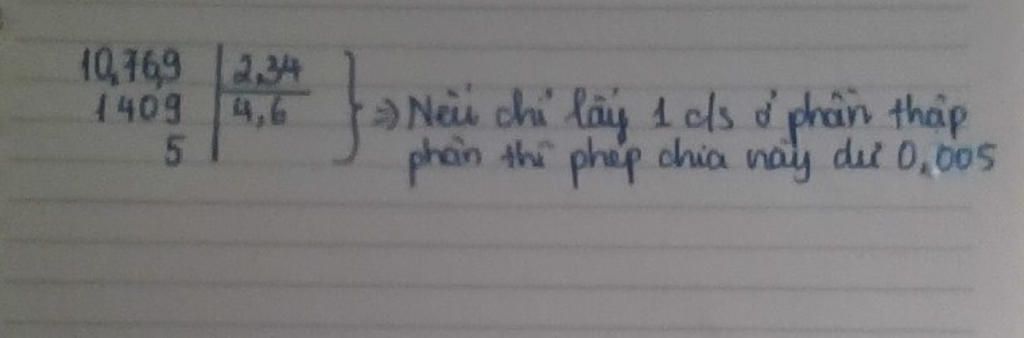 10,76,9 2,34
1409 4,6
5
⇒ Nếu chỉ lấy 1 c/s ở phần thập
phân thì phép chia này dư 0,005